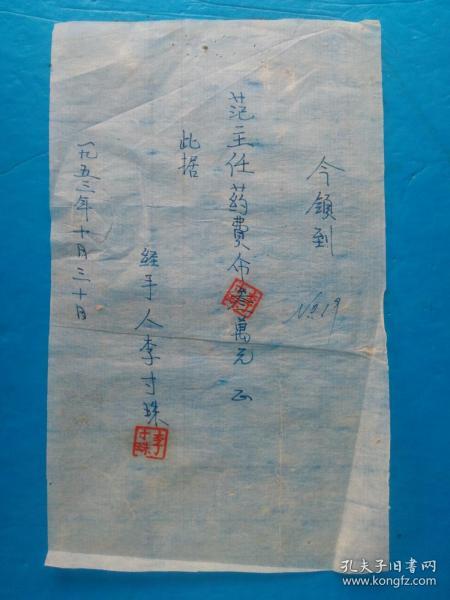 今領到
No 19
范主任药費布叁萬元正
此据
経手人李寸珠
李寸珠
一九五三年十月三十日
孔夫子旧书网
www.kongfz.com